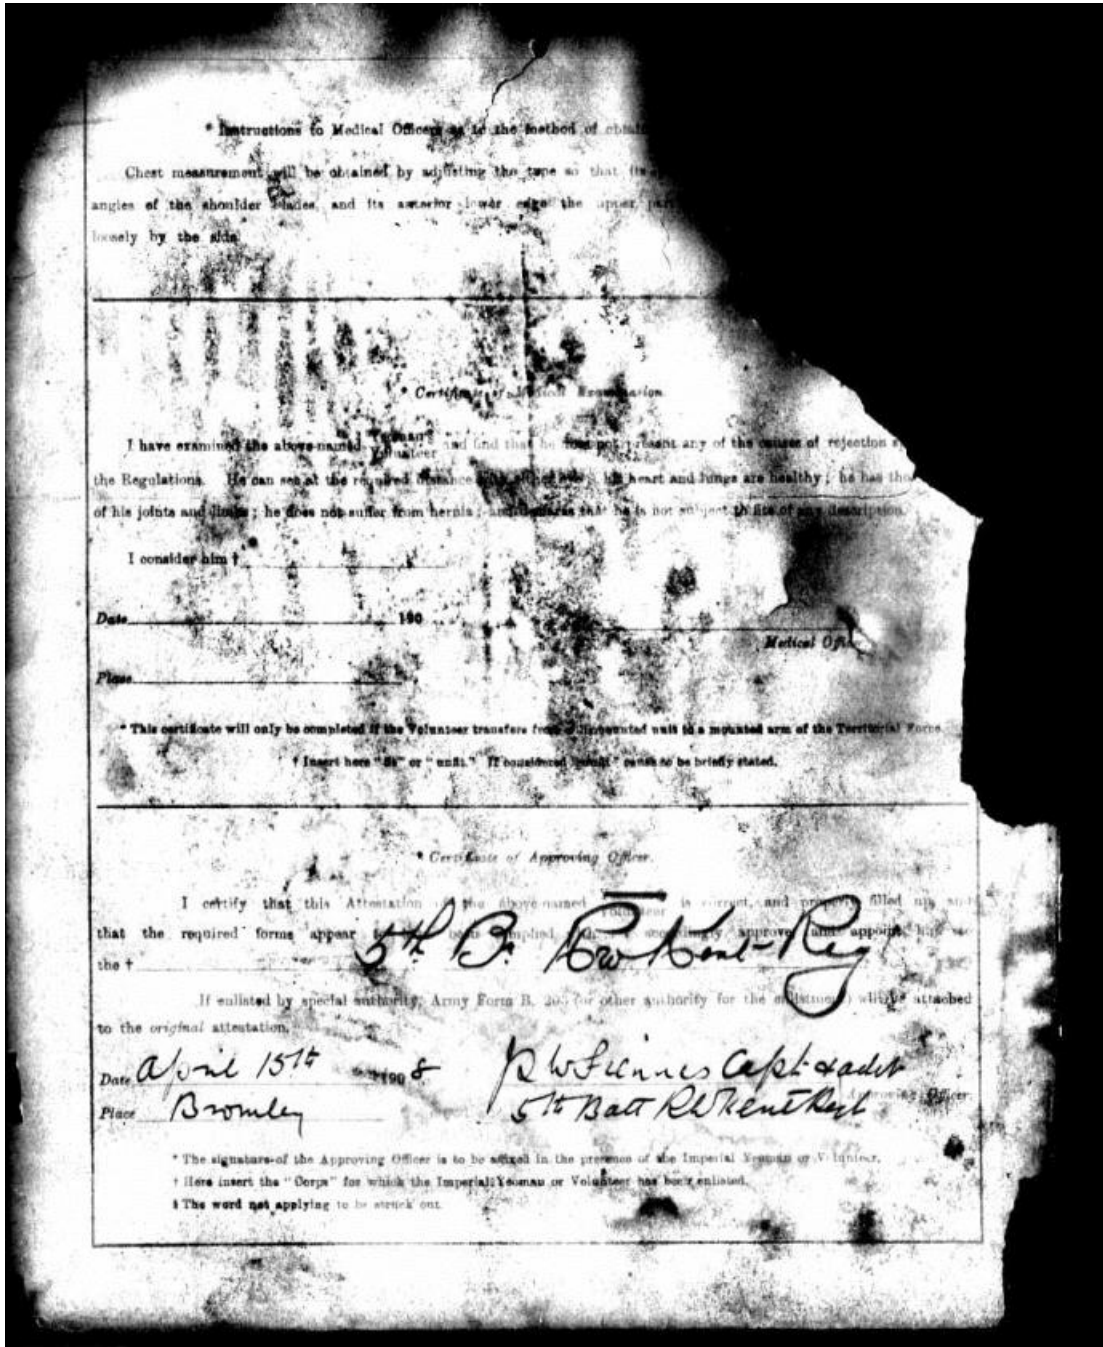 * Instructions to Medical Officers as to the method of
Chest measurement will be obtained by adjusting the tape so that its
angles of the shoulder blades, and its anterior lower edge the upper part
loosely by the side.
* Certificate of Medical Examination.
I have examined the above-named Yeoman
Volunteer and find that he does not present any of the causes of rejection
the Regulations. He can see at the required distance with either eye; his heart and lungs are healthy; he has the
of his joints and limbs; he does not suffer from hernia; and declares that he is not subject to fits of any description.
I consider him †
Date 190
Medical
Place
* This certificate will only be completed if the Volunteer transfers from a dismounted unit to a mounted arm of the Territorial Force.
† Insert here "fit" or "unfit." If considered "unfit" cause to be briefly stated.
* Certificate of Approving Officer.
I certify that this Attestation of the above-named Volunteer is correct, and properly filled up, and
that the required forms appear to have been complied with. I accordingly approve, and appoint him to
the † 5th Bn Rw Kent Reg
If enlisted by special authority, Army Form B. (or other authority for the enlistment) will be attached
to the original attestation.
Date April 15th 1908 Capt & adjt
Approving Officer.
Place Bromley 5th Batt R W Kent Regt
* The signature of the Approving Officer is to be affixed in the presence of the Imperial Yeoman or Volunteer.
† Here insert the "Corps" for which the Imperial Yeoman or Volunteer has been enlisted.
‡ The word not applying to be struck out.